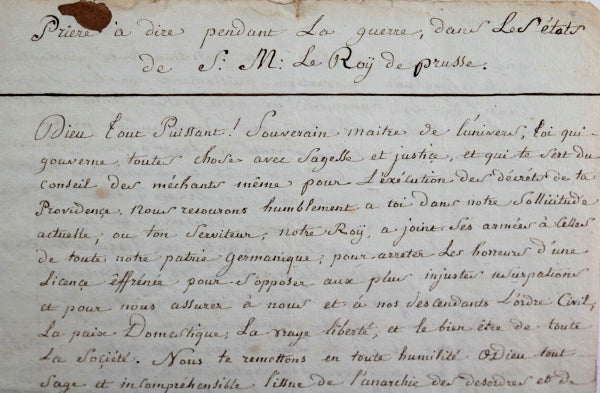 Priere à dire pendant La guerre, dans Les états
de S: M: Le Roÿ de prusse.
Dieu tout Puissant! Souverain maitre de l'univers, toi qui
gouverne toutes chose avec Sagesse et justice, et qui te sert du
Conseil des méchants même pour L'exécution des décrets de ta
Providence. Nous resourons humblement a toi dans notre Sollicitude
actuelle, ou ton Serviteur, notre Roÿ, a joint Ses armées à Celles
de toute notre patrie Germanique; pour arreter Les horreurs d'une
Licence éffrénée pour S'opposer aux plus injustes usurpations
et pour nous assurer à nous et à nos descendants L'ordre Civil,
La paix Domestique; La vraye liberté, et le bien être de toute
La Société. Nous te remettons en toute humilité ô Dieu tout
Sage et incompréhensible l'issue de l'anarchie des desordres et de